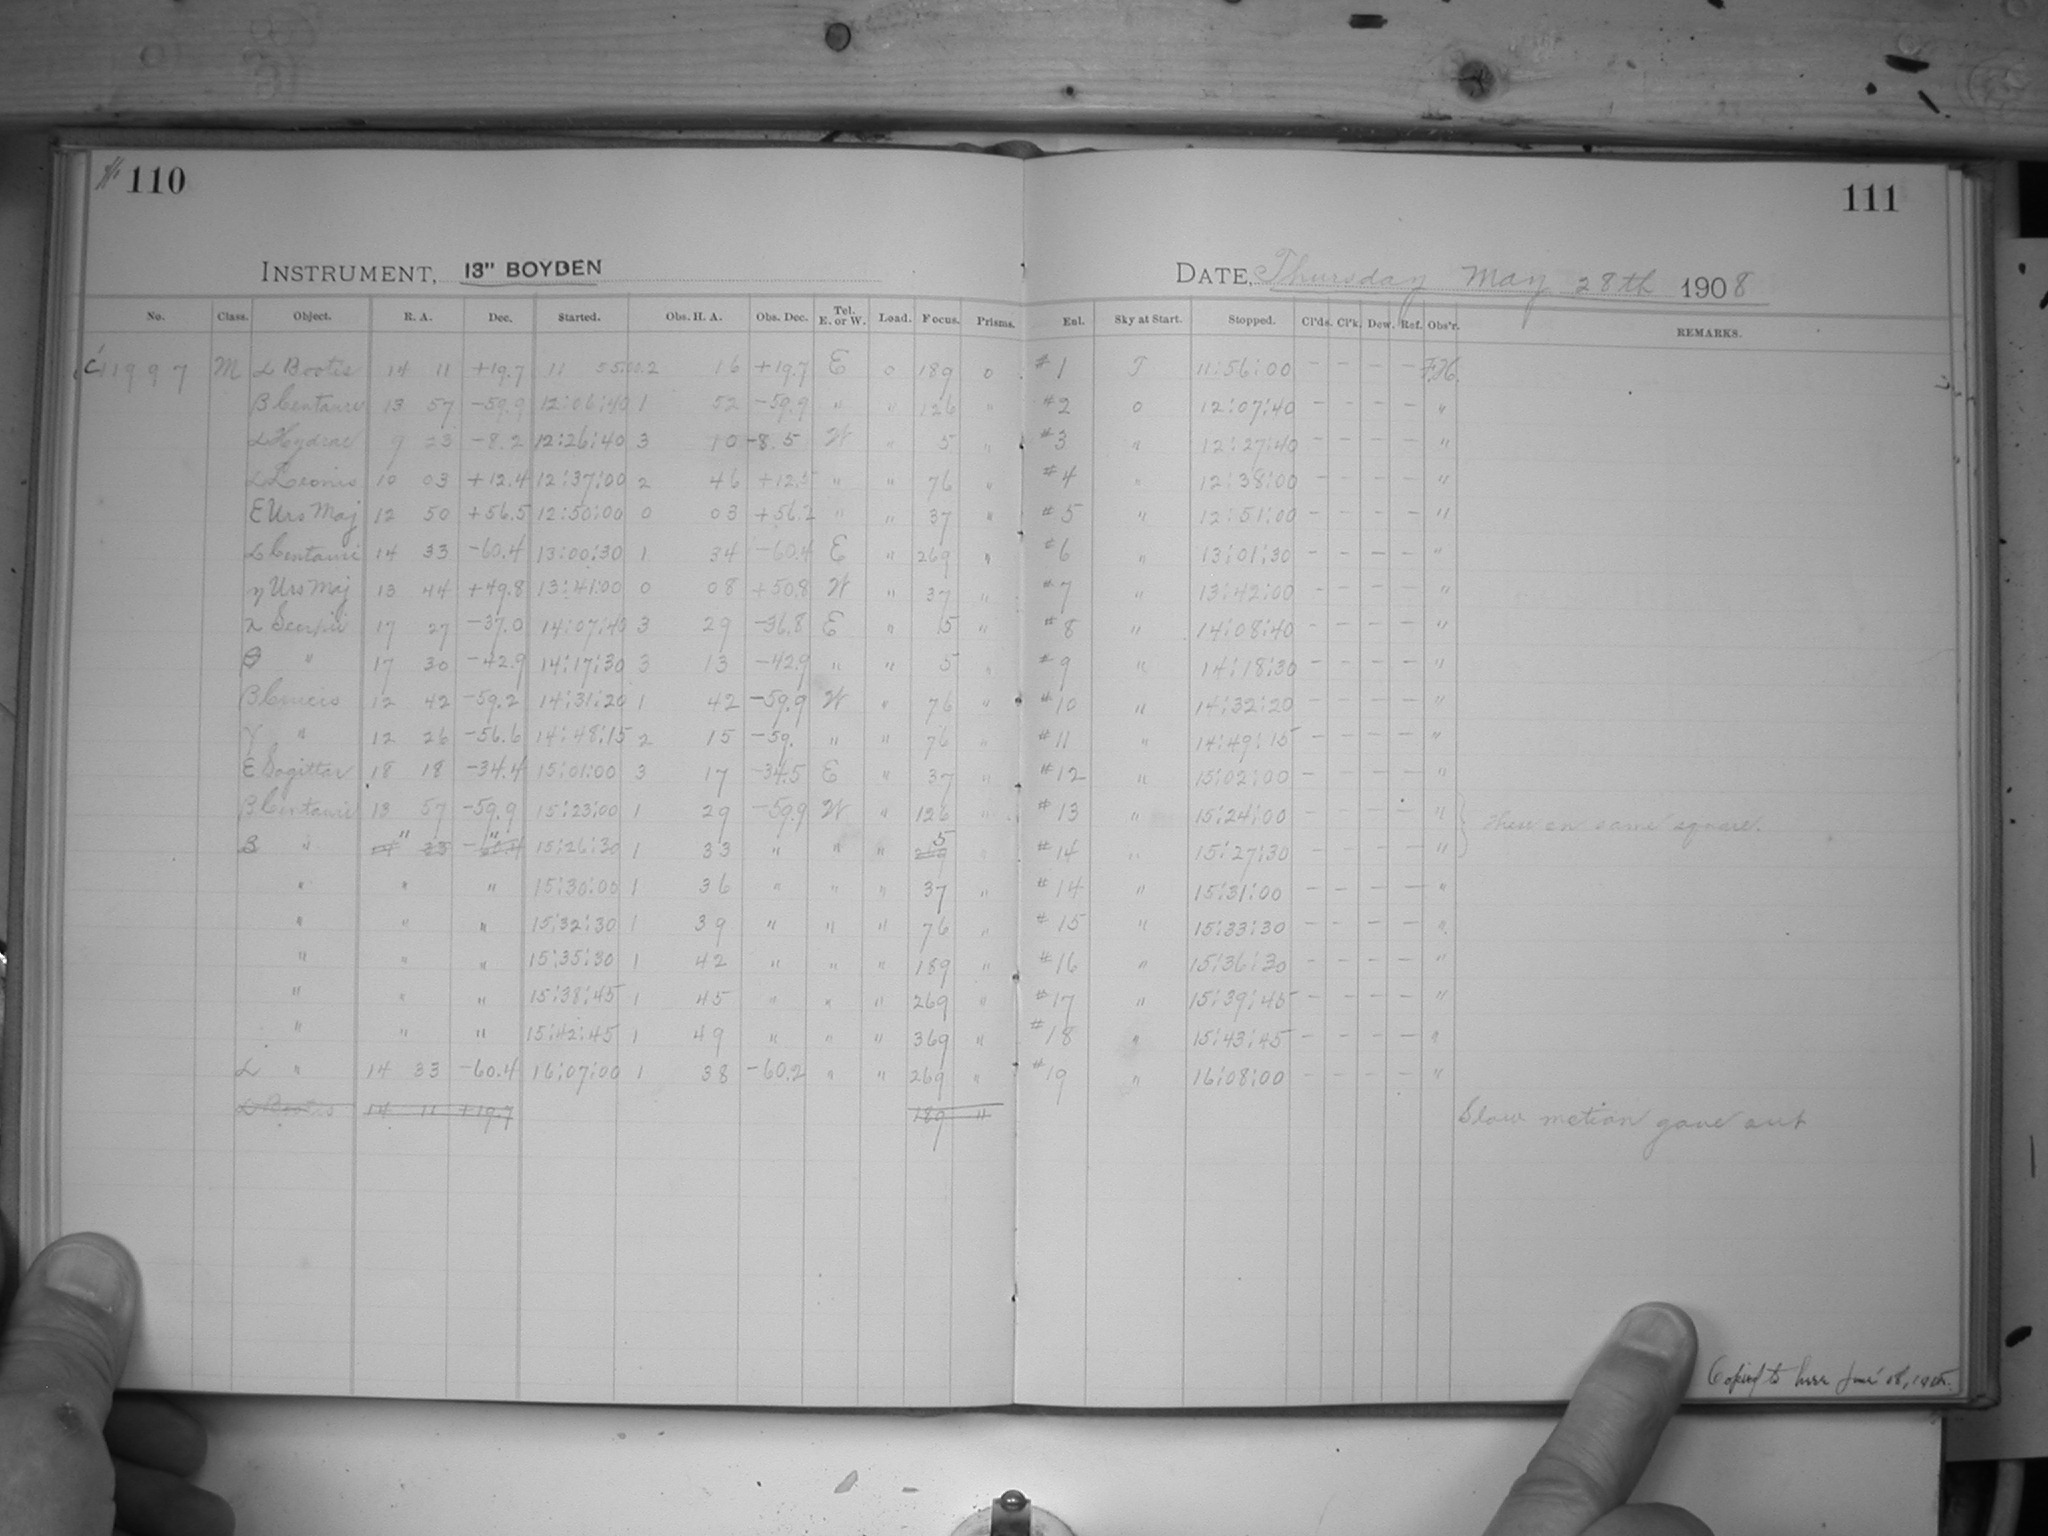 110
111
INSTRUMENT, 13" BOYDEN
DATE, Thursday May 28th 1908
No. Class. Object. R. A. Dec. Started. Obs. H. A. Obs. Dec. Tel. E. or W. Load. Focus. Prisms. Enl. Sky at Start. Stopped. Cl'ds. Cl'k. Dew. Ref. Obs'r. REMARKS.
C 11997 M α Bootis 14 11 +19.7 11 55:00 2 16 +19.7 E 0 189 0 #1 T 11:56:00 – – – – F.H.
β Centauri 13 57 -59.9 12:06:40 1 52 -59.9 " " 126 " #2 0 12:07:40 – – – – "
α Hydrae 9 23 -8.2 12:26:40 3 10 -8.5 W " 5 " #3 " 12:27:40 – – – – "
α Leonis 10 03 +12.4 12:37:00 2 46 +12.5 " " 76 " #4 " 12:38:00 – – – – "
ε Urs Maj 12 50 +56.5 12:50:00 0 03 +56.2 " " 37 " #5 " 12:51:00 – – – – "
α Centauri 14 33 -60.4 13:00:30 1 34 -60.4 E " 269 " #6 " 13:01:30 – – – – "
η Urs Maj 13 44 +49.8 13:41:00 0 08 +50.8 W " 37 " #7 " 13:42:00 – – – – "
λ Scorpii 17 27 -37.0 14:07:40 3 29 -36.8 E " 5 " #8 " 14:08:40 – – – – "
θ " 17 30 -42.9 14:17:30 3 13 -42.9 " " 5 " #9 " 14:18:30 – – – – "
β Crucis 12 42 -59.2 14:31:20 1 42 -59.9 W " 76 " #10 " 14:32:20 – – – – "
γ " 12 26 -56.6 14:48:15 2 15 -59. " " 76 " #11 " 14:49:15 – – – – "
ε Sagittar 18 18 -34.4 15:01:00 3 17 -34.5 E " 37 " #12 " 15:02:00 – – – – "
β Centauri 13 57 -59.9 15:23:00 1 29 -59.9 W " 126 " #13 " 15:24:00 – – – – "
β " " " 15:26:30 1 33 " " " 5 " #14 " 15:27:30 – – – – " } These on same square.
" " " 15:30:00 1 36 " " " 37 " #14 " 15:31:00 – – – – "
" " " 15:32:30 1 39 " " " 76 " #15 " 15:33:30 – – – – "
" " " 15:35:30 1 42 " " " 189 " #16 " 15:36:30 – – – – "
" " " 15:38:45 1 45 " " " 269 " #17 " 15:39:45 – – – – "
" " " 15:42:45 1 49 " " " 369 " #18 " 15:43:45 – – – – "
α " 14 33 -60.4 16:07:00 1 38 -60.2 " " 269 " #19 " 16:08:00 – – – – "
α Bootis 14 11 +19.7 189 " Slow motion gave out
Copied to here June 18,